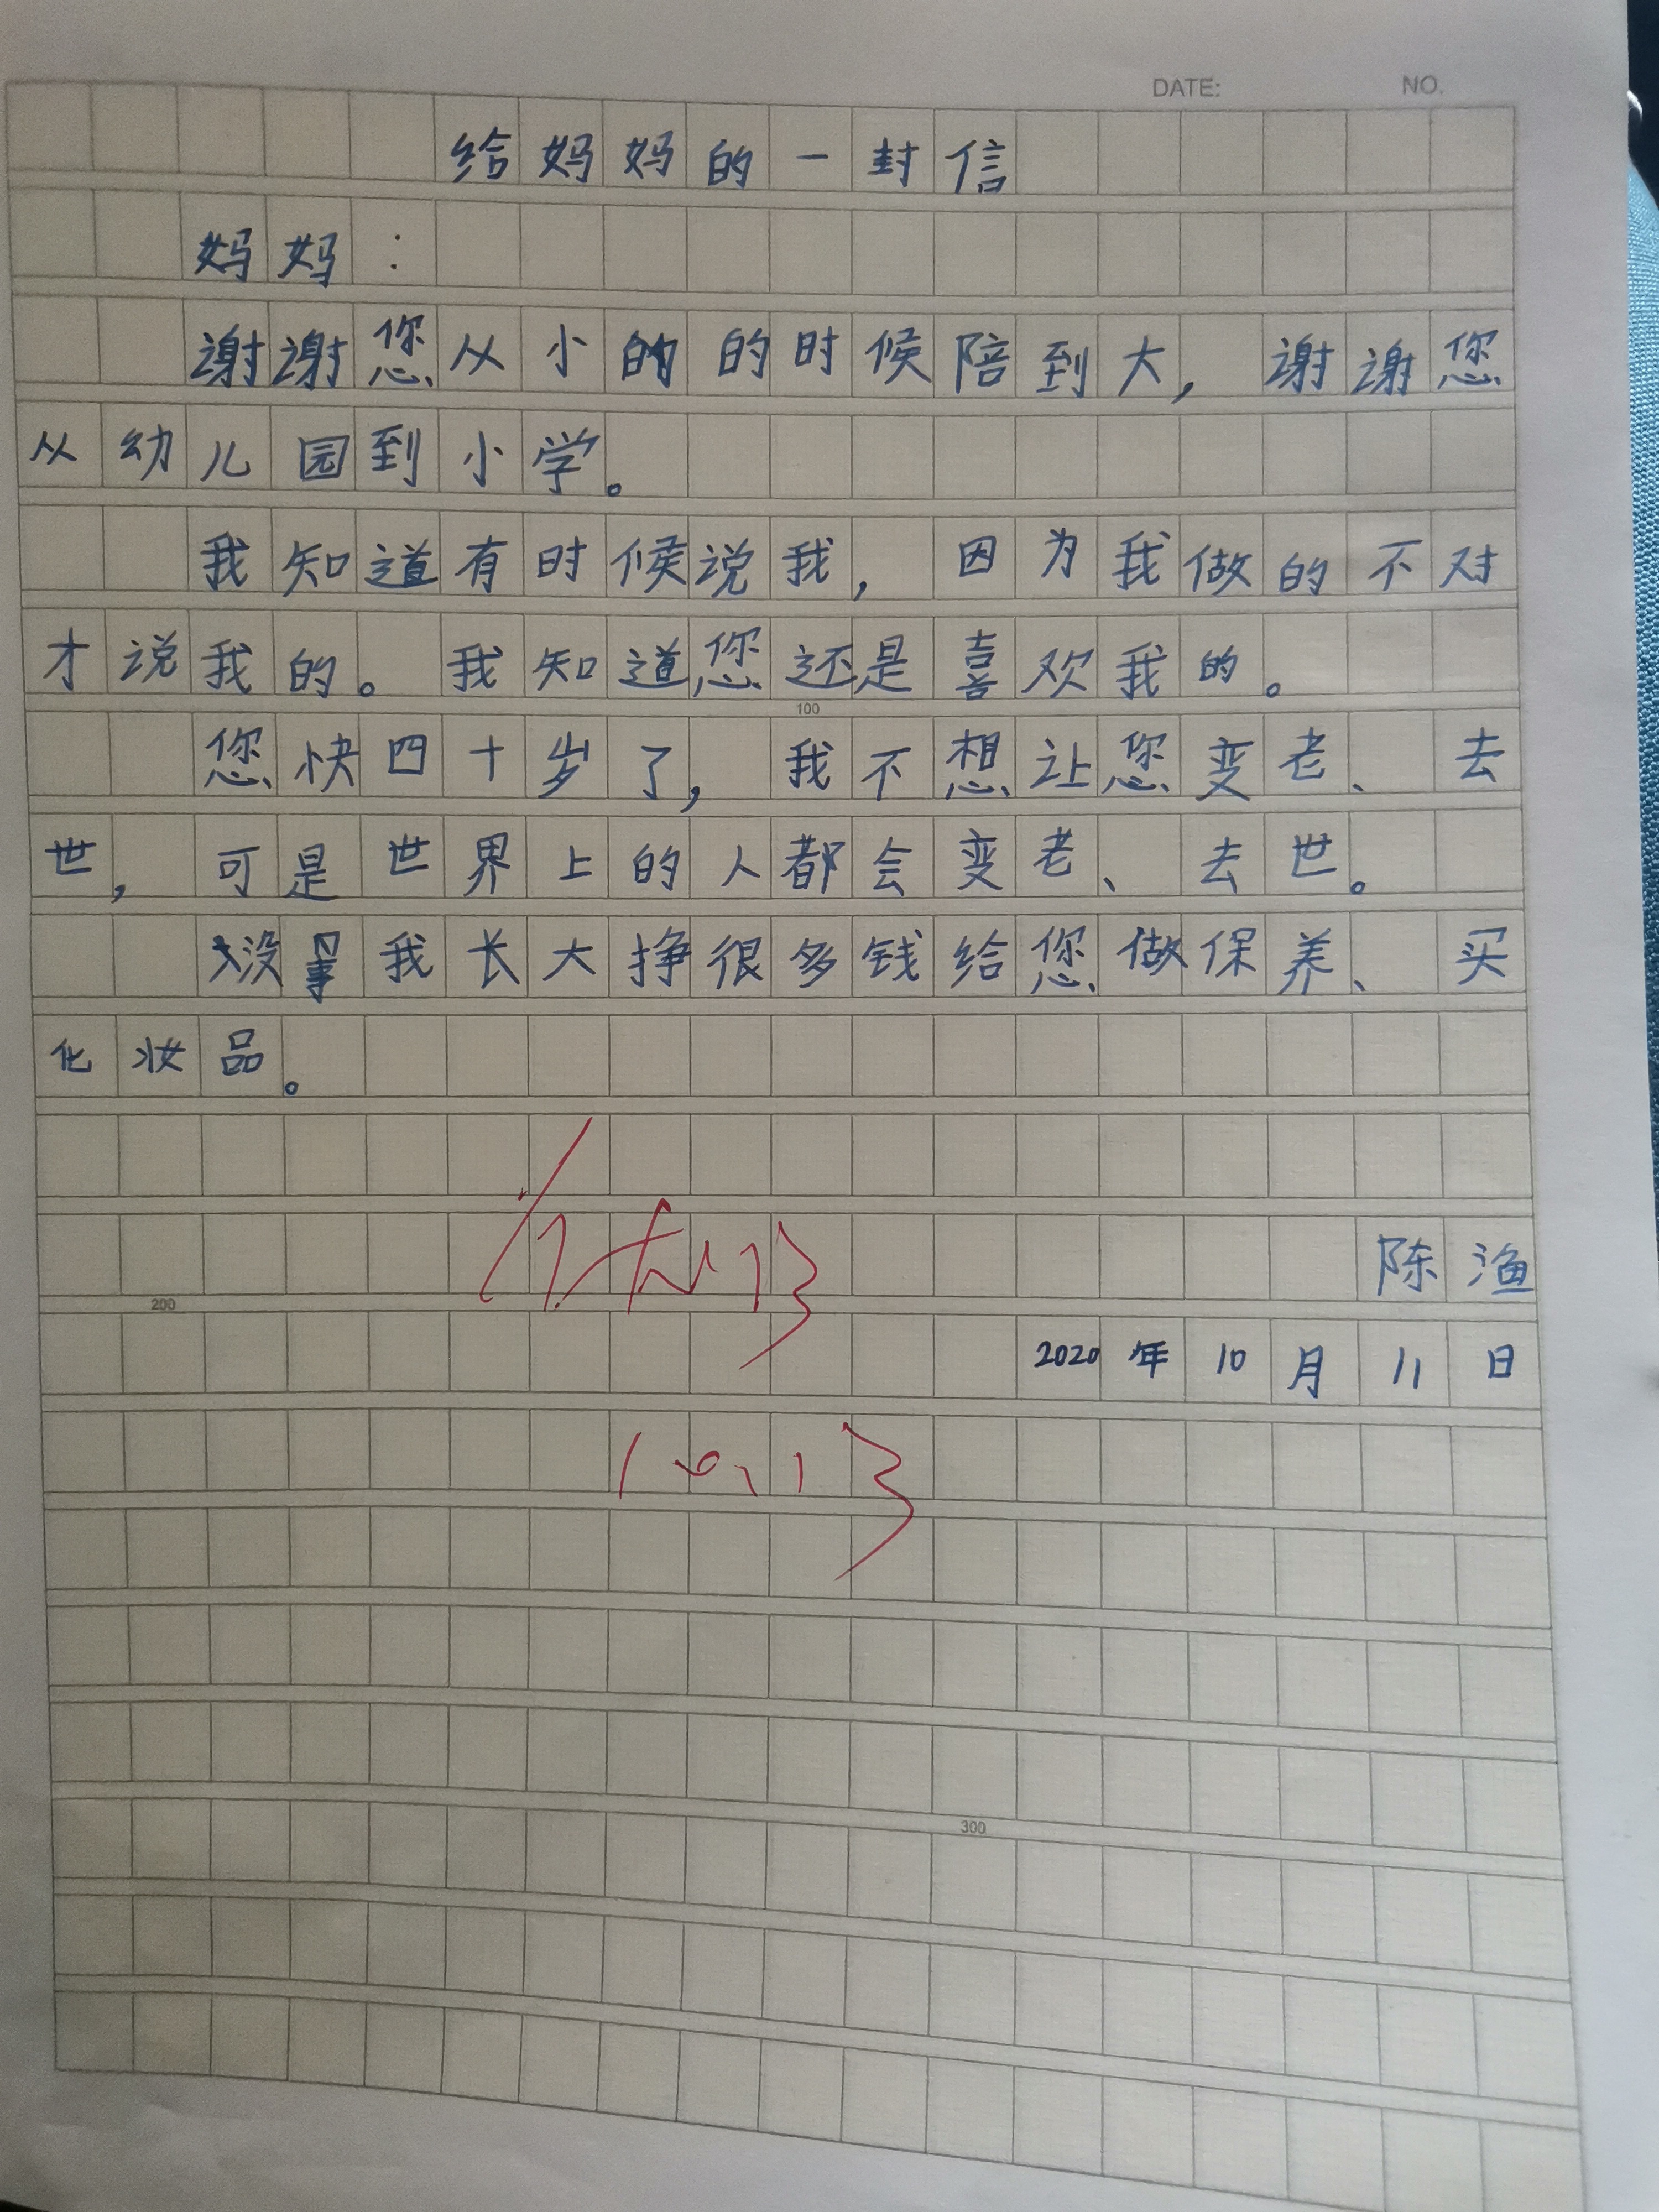 DATE: NO.
给妈妈的一封信
妈妈：
谢谢您从小的的时候陪到大，谢谢您
从幼儿园到小学。
我知道有时候说我，因为我做的不对
才说我的。我知道您还是喜欢我的。
100
您快四十岁了，我不想让您变老、去
世，可是世界上的人都会变老、去世。
没事我长大挣很多钱给您做保养、买
化妆品。
陈渔
200
2020年10月11日
10.13
300